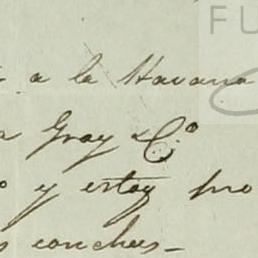 FU
a la Havana
Gray & Cº
y estoy pro
conchas